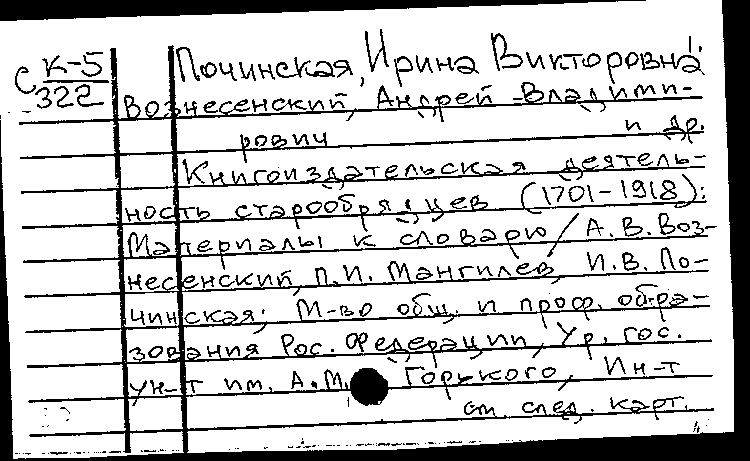 С К-5
322
Починская, Ирина Викторовна
Вознесенский, Андрей Владими-
рович и др.
Книгоиздательская деятель-
ность старообрядцев (1701-1918):
Материалы к словарю / А.В. Воз-
несенский, П.И. Мангилев, И.В. По-
чинская; М-во общ. и проф. обра-
зования Рос. Федерации, Ур. гос.
ун-т им. А.М. Горького, Ин-т
см. след. карт.